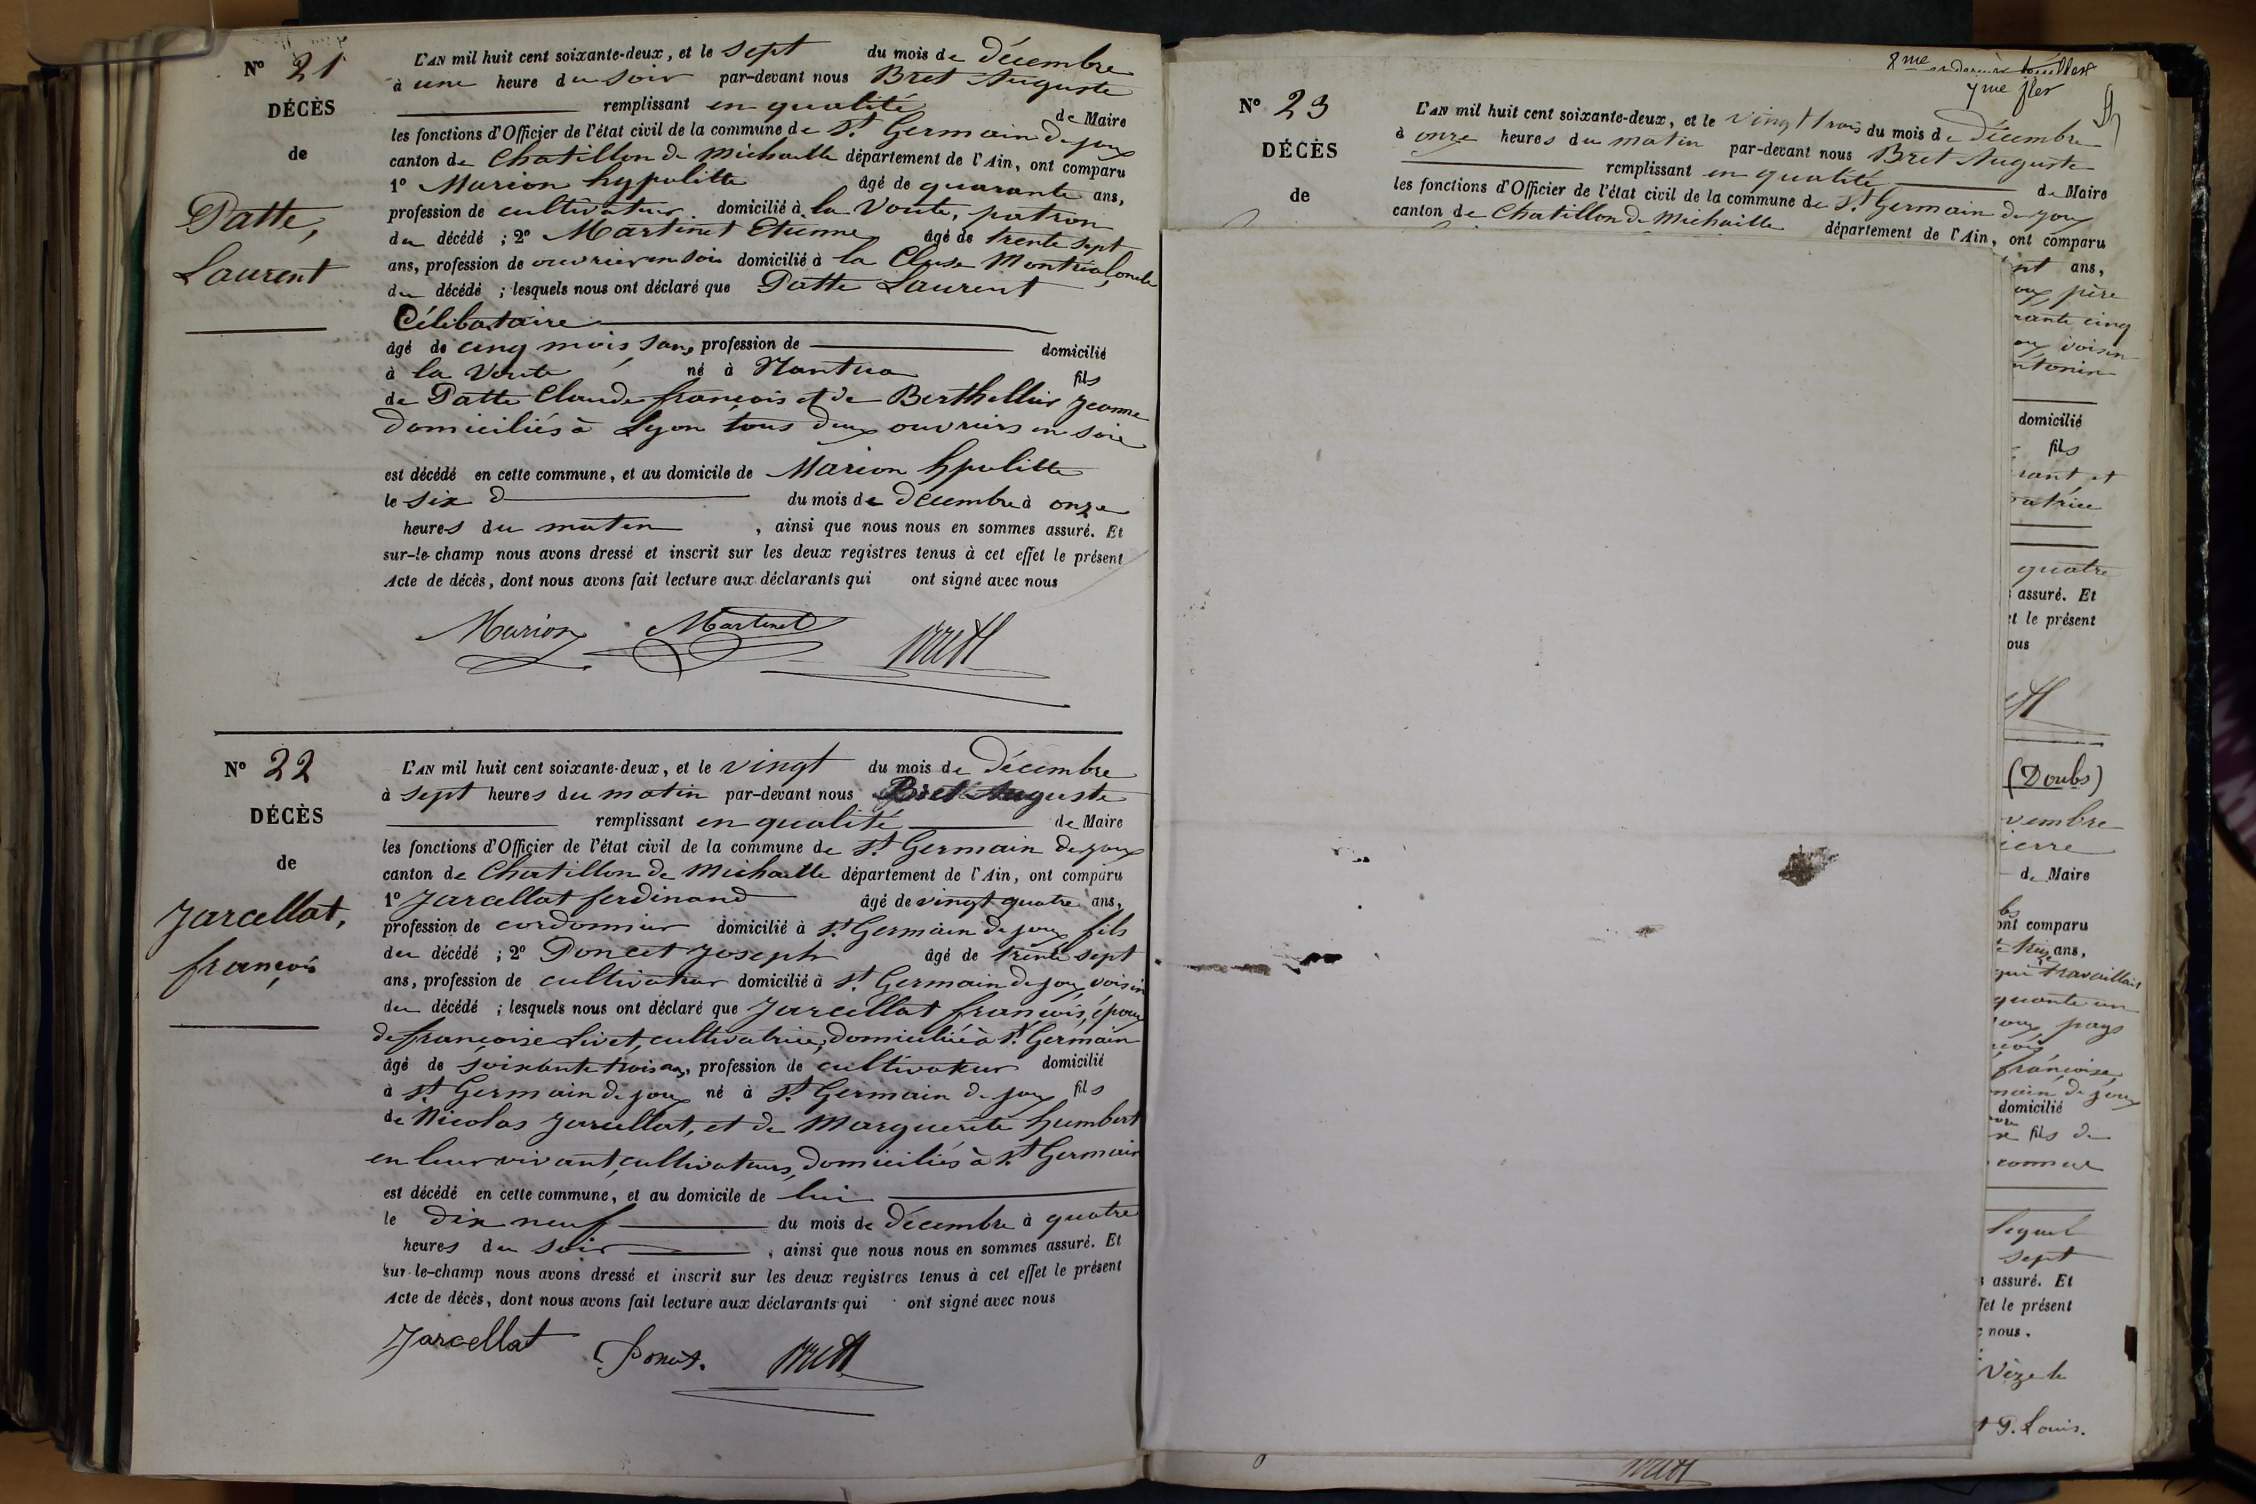 N° 21
DÉCÈS
de
Patte,
Laurent
L'AN mil huit cent soixante-deux, et le sept du mois de décembre
à une heure du soir par-devant nous Bret Auguste
remplissant en qualité de Maire
les fonctions d'Officier de l'état civil de la commune de St Germain de joux
canton de Chatillon de Michaille département de l'Ain, ont comparu
1° Marion hypolitte âgé de quarante ans,
profession de cultivateur domicilié à la Voute, patron
du décédé ; 2° Martinet Etienne âgé de trente sept
ans, profession de ouvrier en soie domicilié à la Cluse Montréal, oncle
du décédé ; lesquels nous ont déclaré que Patte Laurent
Célibataire
âgé de cinq mois, sans profession de domicilié
à la Voute né à Nantua fils
de Patte Claude françois et de Berthellier Jeanne
domiciliés à Lyon tous deux ouvriers en soie
est décédé en cette commune, et au domicile de Marion hypolitte
le six d du mois de décembre à onze
heures du matin , ainsi que nous nous en sommes assuré. Et
sur-le-champ nous avons dressé et inscrit sur les deux registres tenus à cet effet le présent
Acte de décès, dont nous avons fait lecture aux déclarants qui ont signé avec nous
Marion Martinet Brett
N° 22
DÉCÈS
de
Jarcellat,
françois
L'AN mil huit cent soixante-deux, et le vingt du mois de décembre
à sept heures du matin par-devant nous Bret Auguste
remplissant en qualité de Maire
les fonctions d'Officier de l'état civil de la commune de St Germain de joux
canton de Chatillon de Michaille département de l'Ain, ont comparu
1° Jarcellat ferdinand âgé de vingt quatre ans,
profession de cordonnier domicilié à St Germain de joux fils
du décédé ; 2° Poncet Joseph âgé de trente sept
ans, profession de cultivateur domicilié à St Germain de joux, voisin
du décédé ; lesquels nous ont déclaré que Jarcellat françois, époux
de françoise Livet, cultivatrice, domiciliée à St Germain
âgé de soixante trois ans, profession de cultivateur domicilié
à St Germain de joux né à St Germain de joux fils
de Nicolas Jarcellat, et de Marguerite humbert
en leur vivant, cultivateurs, domiciliés à St Germain
est décédé en cette commune, et au domicile de lui
le dix neuf du mois de décembre à quatre
heures du soir , ainsi que nous nous en sommes assuré. Et
sur-le-champ nous avons dressé et inscrit sur les deux registres tenus à cet effet le présent
Acte de décès, dont nous avons fait lecture aux déclarants qui ont signé avec nous
Jarcellat Poncet. Brett
8me et dernière
7me
N° 23
DÉCÈS
de
L'AN mil huit cent soixante-deux, et le vingt trois du mois de décembre
à onze heures du matin par-devant nous Bret Auguste
remplissant en qualité de Maire
les fonctions d'Officier de l'état civil de la commune de St Germain de joux
canton de Chatillon de Michaille département de l'Ain, ont comparu
ans,
père
rante cinq
voisin
ntonin
domicilié
fils
rant, et
ratrice
quatre
assuré. Et
et le présent
ous
(Doubs)
vembre
ierre
de Maire
ont comparu
ans,
qui travaillait
quante un
pays
françoise,
main de joux
domicilié
fils de
connue
lequel
sept
assuré. Et
fet le présent
nous.
Vèze le
G. Louis.
Brett